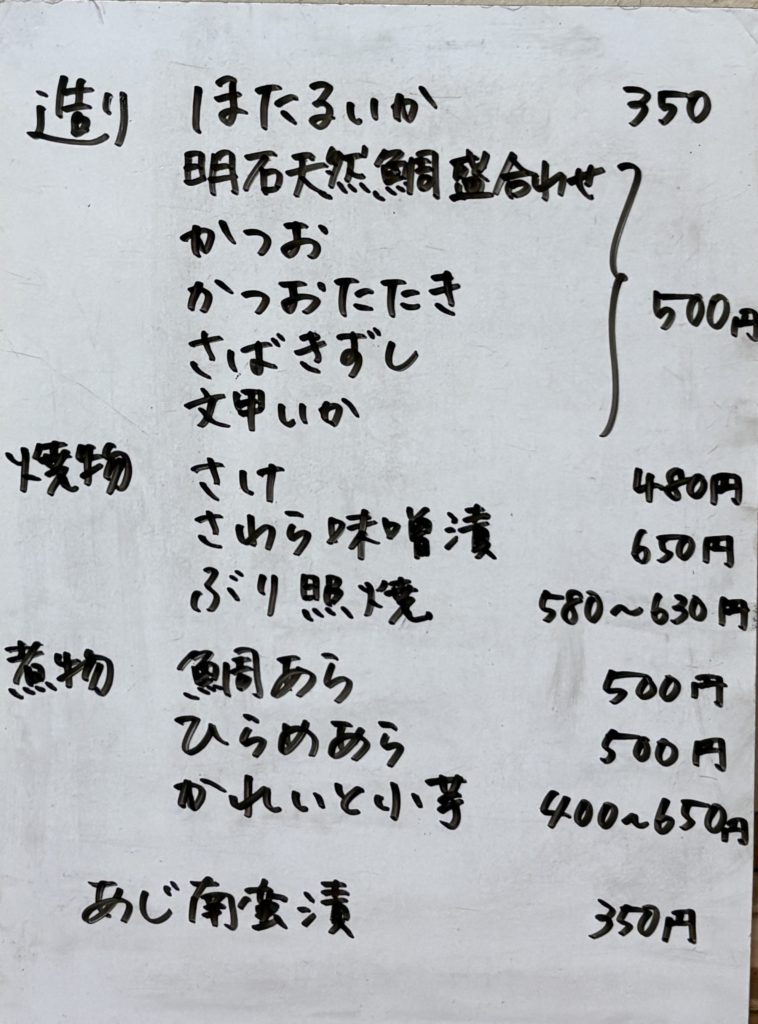 造り ほたるいか 350
明石天然鯛盛合わせ
かつお
かつおたたき 500円
さばきずし
文甲いか
焼物 さけ 480円
さわら味噌漬 650円
ぶり照焼 580〜630円
煮物 鯛あら 500円
ひらめあら 500円
かれいと小芋 400〜650円
あじ南蛮漬 350円